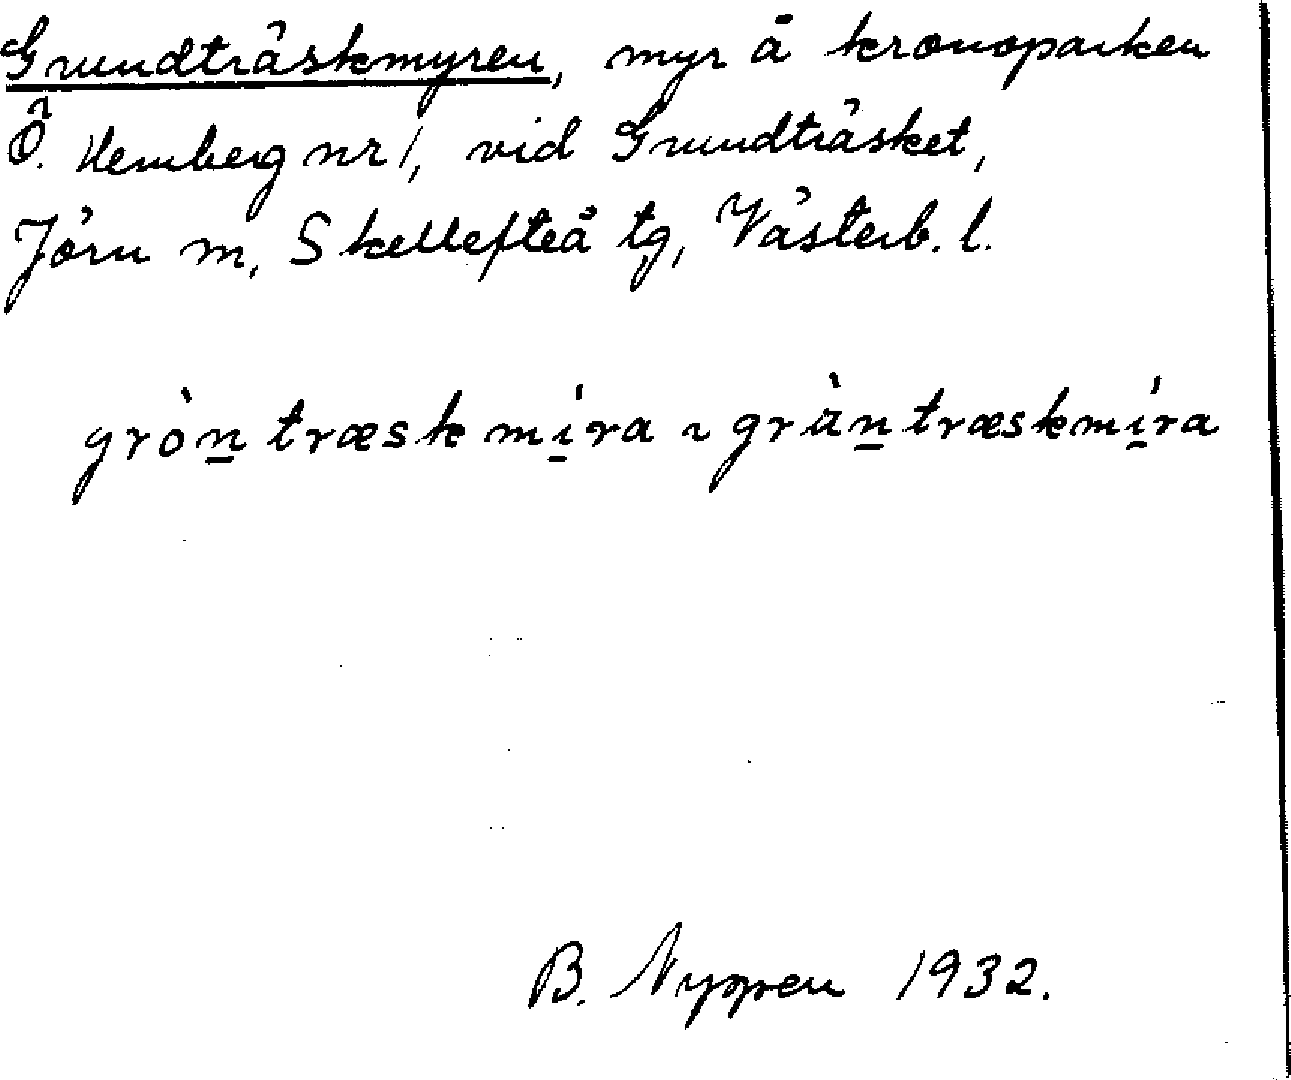 Grundträskmyren, myr å kronoparken
Ö. Hemberg nr 1, vid Grundträsket,
Jörn m, Skellefteå tg, Västerb. l.
gròn̲træskmí̲ra ~ gràn̲træskmí̲ra
B. Nyppen 1932.